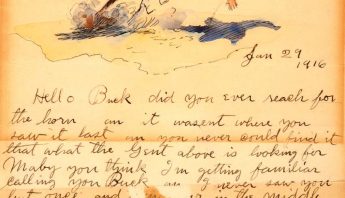 Jan 29
1916
Hello Buck did you ever reach for
the horn an it wasent where you
saw it last an you never could find it
that what the Gent above is looking for
Maby you think I'm getting familiar
calling you Buck an I never saw you
but once and it in the Middle